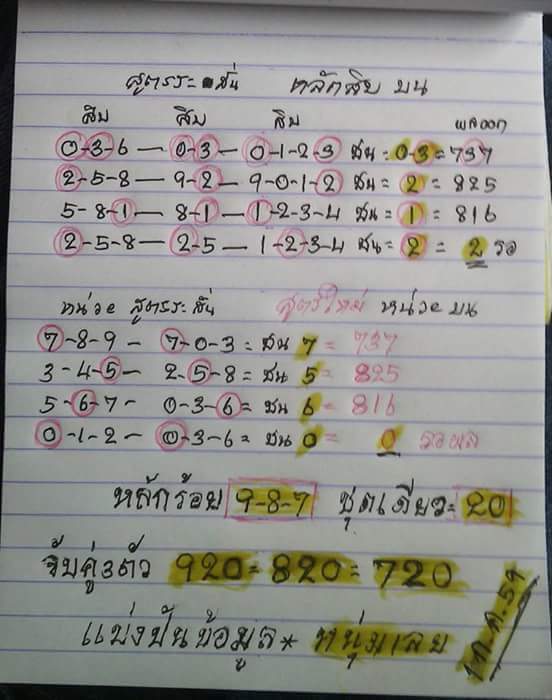 สูตรระสั่น หลักสิบ บน
สิบ สิบ สิบ ผลออก
0-3-6 — 0-3 — 0-1-2-3 ชน = 0-3 = 737
2-5-8 — 9-2 — 9-0-1-2 ชน = 2 = 825
5-8-1 — 8-1 — 1-2-3-4 ชน = 1 = 816
2-5-8 — 2-5 — 1-2-3-4 ชน = 2 = 2 รอ
หน่วย สูตรระสั่น สูตรใหม่ หน่วย บน
7-8-9 - 7-0-3 = ชน 7 = 737
3-4-5 - 2-5-8 = ชน 5 = 825
5-6-7 - 0-3-6 = ชน 6 = 816
0-1-2 0-3-6 = ชน 0 = 0 รอผล
หลักร้อย 9-8-7 ชุดเดียว = 20
จับคู่3ตัว 920 = 820 = 720
แบ่งปันข้อมูล * หนุ่มเลย
1 ก.ค. 59